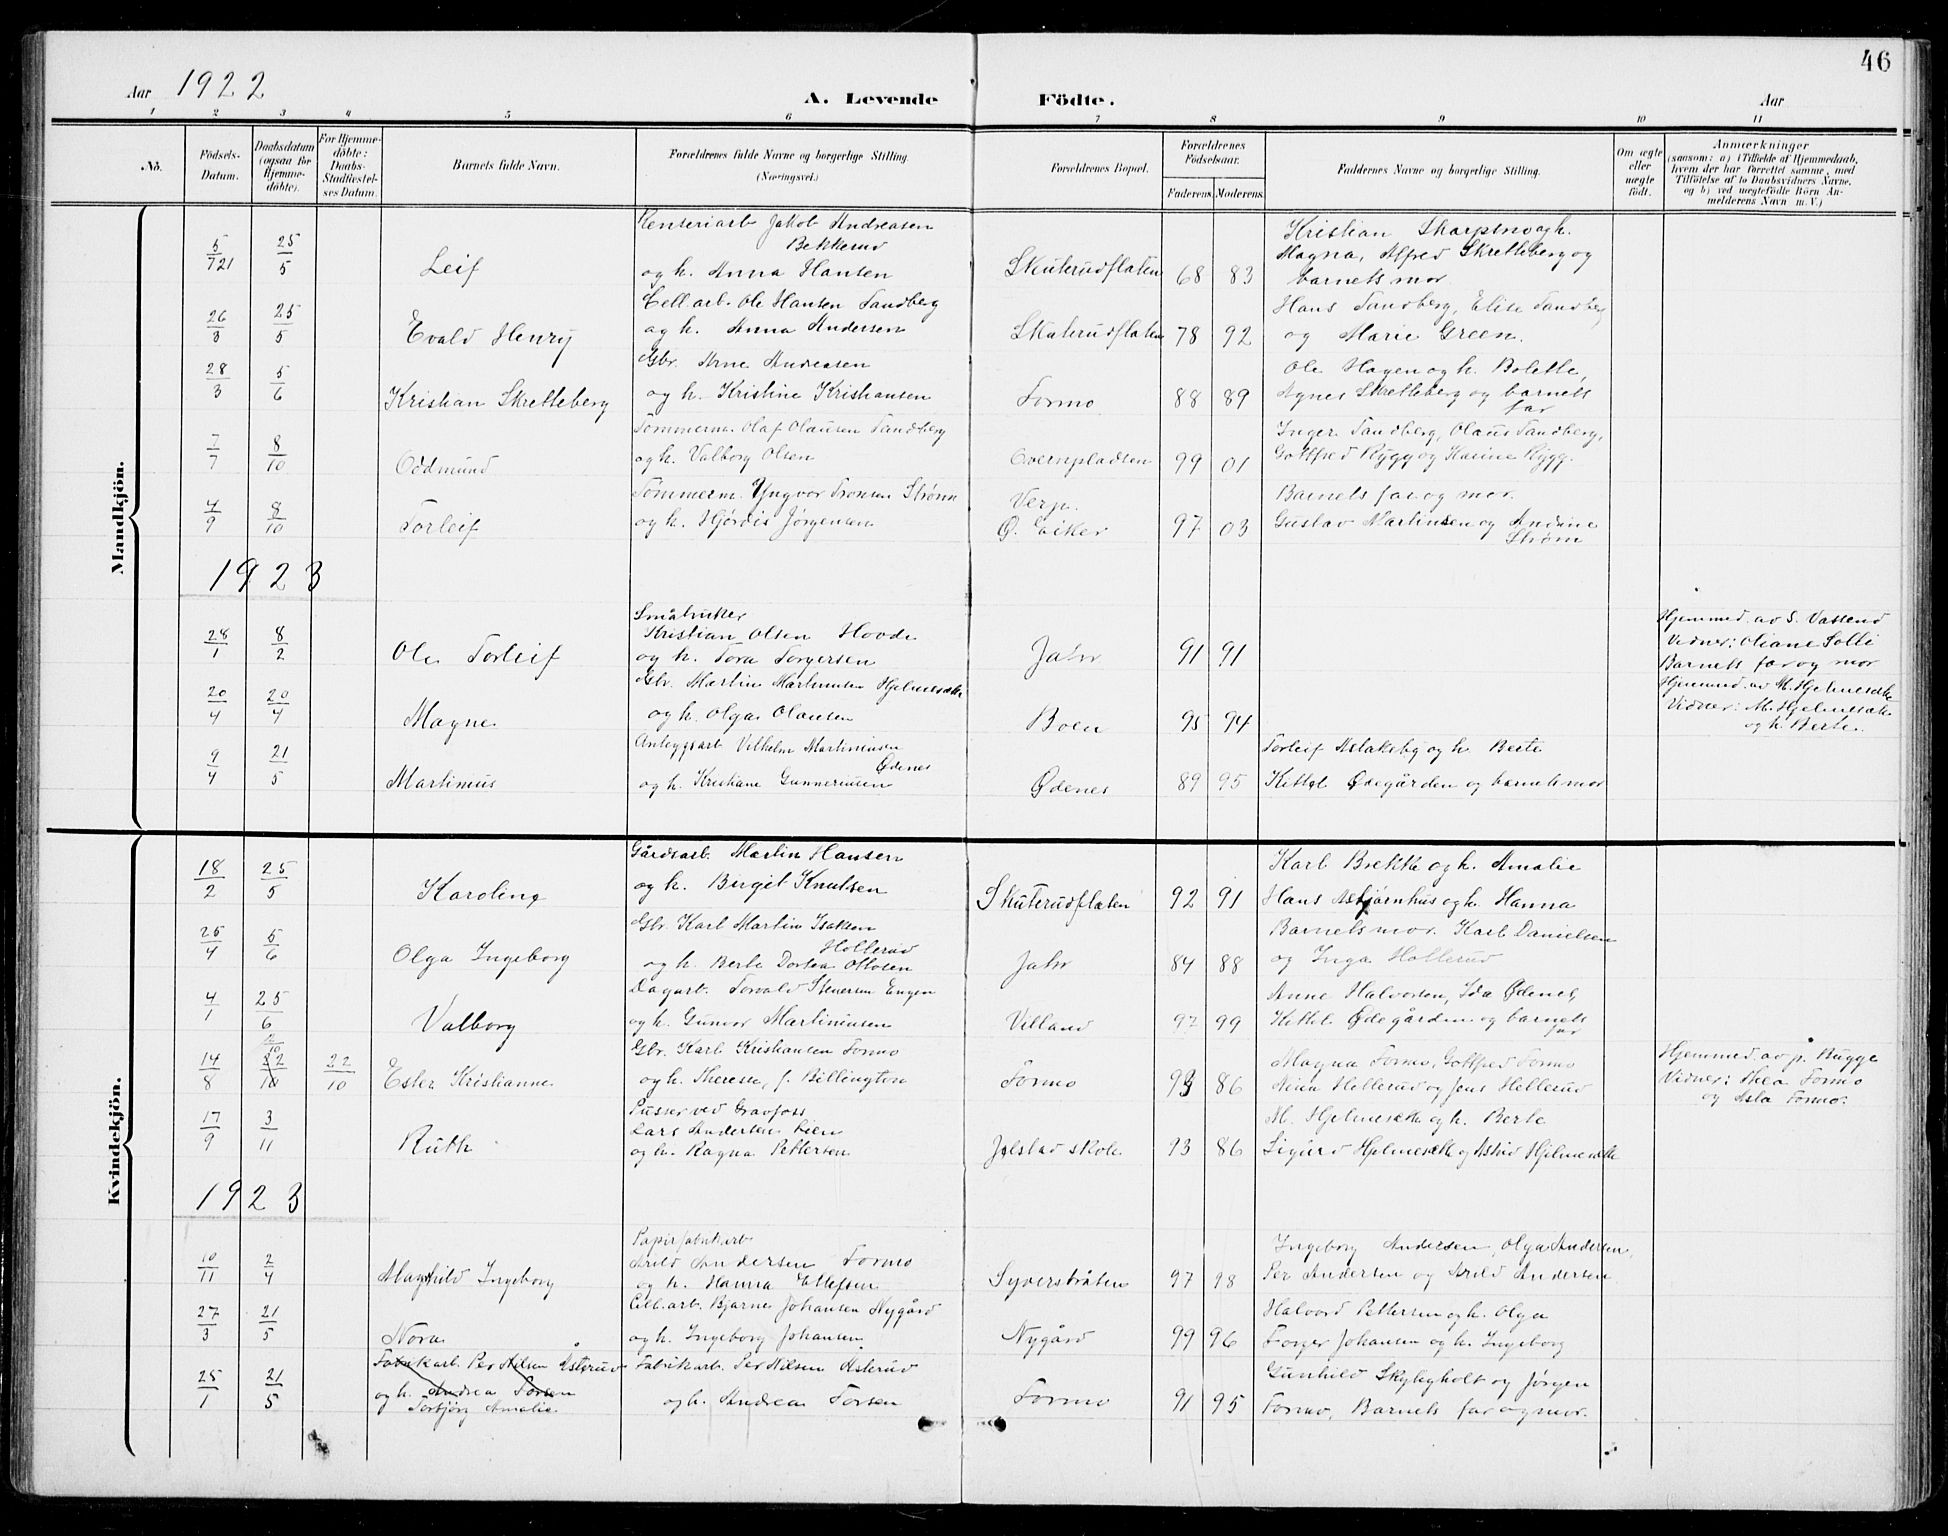 46
Aar 1922
A. Levende Födte.
Aar
1 2 3 4 5 6 7 8 9 10 11
No.
Födsels-Datum.
Daabsdatum (ogsaa for Hjemme-döbte).
For Hjemme-döbte: Daabs-Stadfæstel-ses Datum.
Barnets fulde Navn.
Forældrenes fulde Navne og borgerlige Stilling. (Næringsvei.)
Forældrenes Bopæl.
Forældrenes Födselsaar.
Faderens. Moderens.
Faddernes Navne og borgerlige Stilling.
Om ægte eller uægte födt.
Anmærkninger
(saasom: a) i Tilfælde af Hjemmedaab, hvem der har forrettet samme, med Tilföielse af to Daabsvidners Navne, og b) ved uægtefödte Börn An-melderens Navn m. V.)
Mandkjön.
5/7 21 25/5 Leif
Jakob Andreasen
Bekkerud
og h. Anna Hansen
Skuterudflaten 68 83
Kristian
Magna, Alfred Skretteberg og
barnets mor
26/3 25/5 Evald Henry
Cell.arb. Ole Hansen Sandberg
og h. Anna Andersen
Skuterudflaten 78 92
Hans Sandberg, Elise Sandberg
og Marie Green.
28/3 5/6 Kristian Skretteberg
Gbr. Arne Andreasen
og h. Kristine Kristiansen
Formo 88 89
Ole Hagen og h. Bolette,
Agnes Skretteberg og barnets
far
7/7 8/10 Oddmund
Tømmerm. Olaf Olausen Sandberg
og h. Valborg Olsen
Overnpladsen 99 01
Inger Sandberg, Olaus Sandberg,
Gottfred Rygg og Karine Rygg.
4/9 8/10 Torleif
Tømmerm. Yngvar Tronsen Strøm
og h. Hjørdis Jørgensen
Verp.
Ø. Eiker 97 03
Barnets far og mor.
Gustav Martinsen og Andine
Strøm
1923
28/1 8/2 Ole Torleif
Småbruker
Kristian Olsen Hovde
og h. Tora Torgersen
Jahr 91 91
Hjemmed. av S. Vassend
Vidner: Oliane Solli
Barnets far og mor
20/4 20/4 Magne
Gbr. Martin Martinsen Hjelmesæte
og h. Olga Olausen
Boen 95 94
Hjemmed. av M. Hjelmesæte
Vidner: M. Hjelmesæte
og h. Berte.
9/4 21/5 Martinius
Anlegsarb Vilhelm Martiniusen
Ødenes
og h. Kristiane Gunneriusen
Ødenes 89 95
Torleif Aslaksby og h. Berte
Kittil Ødegården og barnets mor
Kvindekjön.
18/2 25/5 Karoline
Gårdsarb. Martin Hansen
og h. Birgit Knutsen
Skuterudflaten 92 91
Karl Brekke og h. Amalie
Hans Asbjørnhus og h. Hanna
25/4 5/6 Olga Ingeborg
Gbr. Karl Martin Isaksen
Hollerud
og h. Berte Dortea Ottosen
Jahr 84 88
Barnets mor. Karl Danielsen
og Inga Hollerud
4/1 25/6 Valborg
Dagarb. Torvald Stenersen Engen
og h. Gunvor Martiniusen
Villand 97 99
Anne Halvorsen, Ida Ødenes,
Kittil Ødegården og barnets
far
14/8 22/10 22/10 Ester Kristianne
Gbr. Karl Kristiansen Formo
og h. Therese, f. Billington
Formo 93 86
Magna Formo, Gottfred Formo
Hellerud og Jens Hellerud
Hjemmed. av p. Bugge
Vidner: Thea Formo
og Asla Formo.
17/9 3/11 Ruth
Pusser ved Gravfoss
Lars Andersen Lien
og h. Ragna Pettersen
Jølstad skole 93 86
M. Hjelmesæte og h. Berte
Sigurd Hjelmesæte og Astrid Hjelmesæte
1923
10/11 2/4 Maghild Ingeborg
Papirfabrikarb
Arild Andersen Formo
og h. Hanna Ellefsen
Syverstråten 97 98
Ingeborg Andersen, Olga Andersen,
Per Andersen og Arild Andersen
27/3 21/5 Nora
Cell.arb. Bjarne Johansen Nygård
og h. Ingeborg Johansen
Nygård 99 96
Halvord Pettersen og h. Olga
Torger Johansen og h. Ingeborg
25/1 21/5 Fabrikarb. Per Nilsen Åsterud
og h. Andrea Torsen
Torbjørg Amalie
Fabrikarb. Per Nilsen Åsterud
og h. Andrea Torsen
Formo 91 95
Gunhild Skylygholt og Jørgen
Formo, Barnets far og mor.